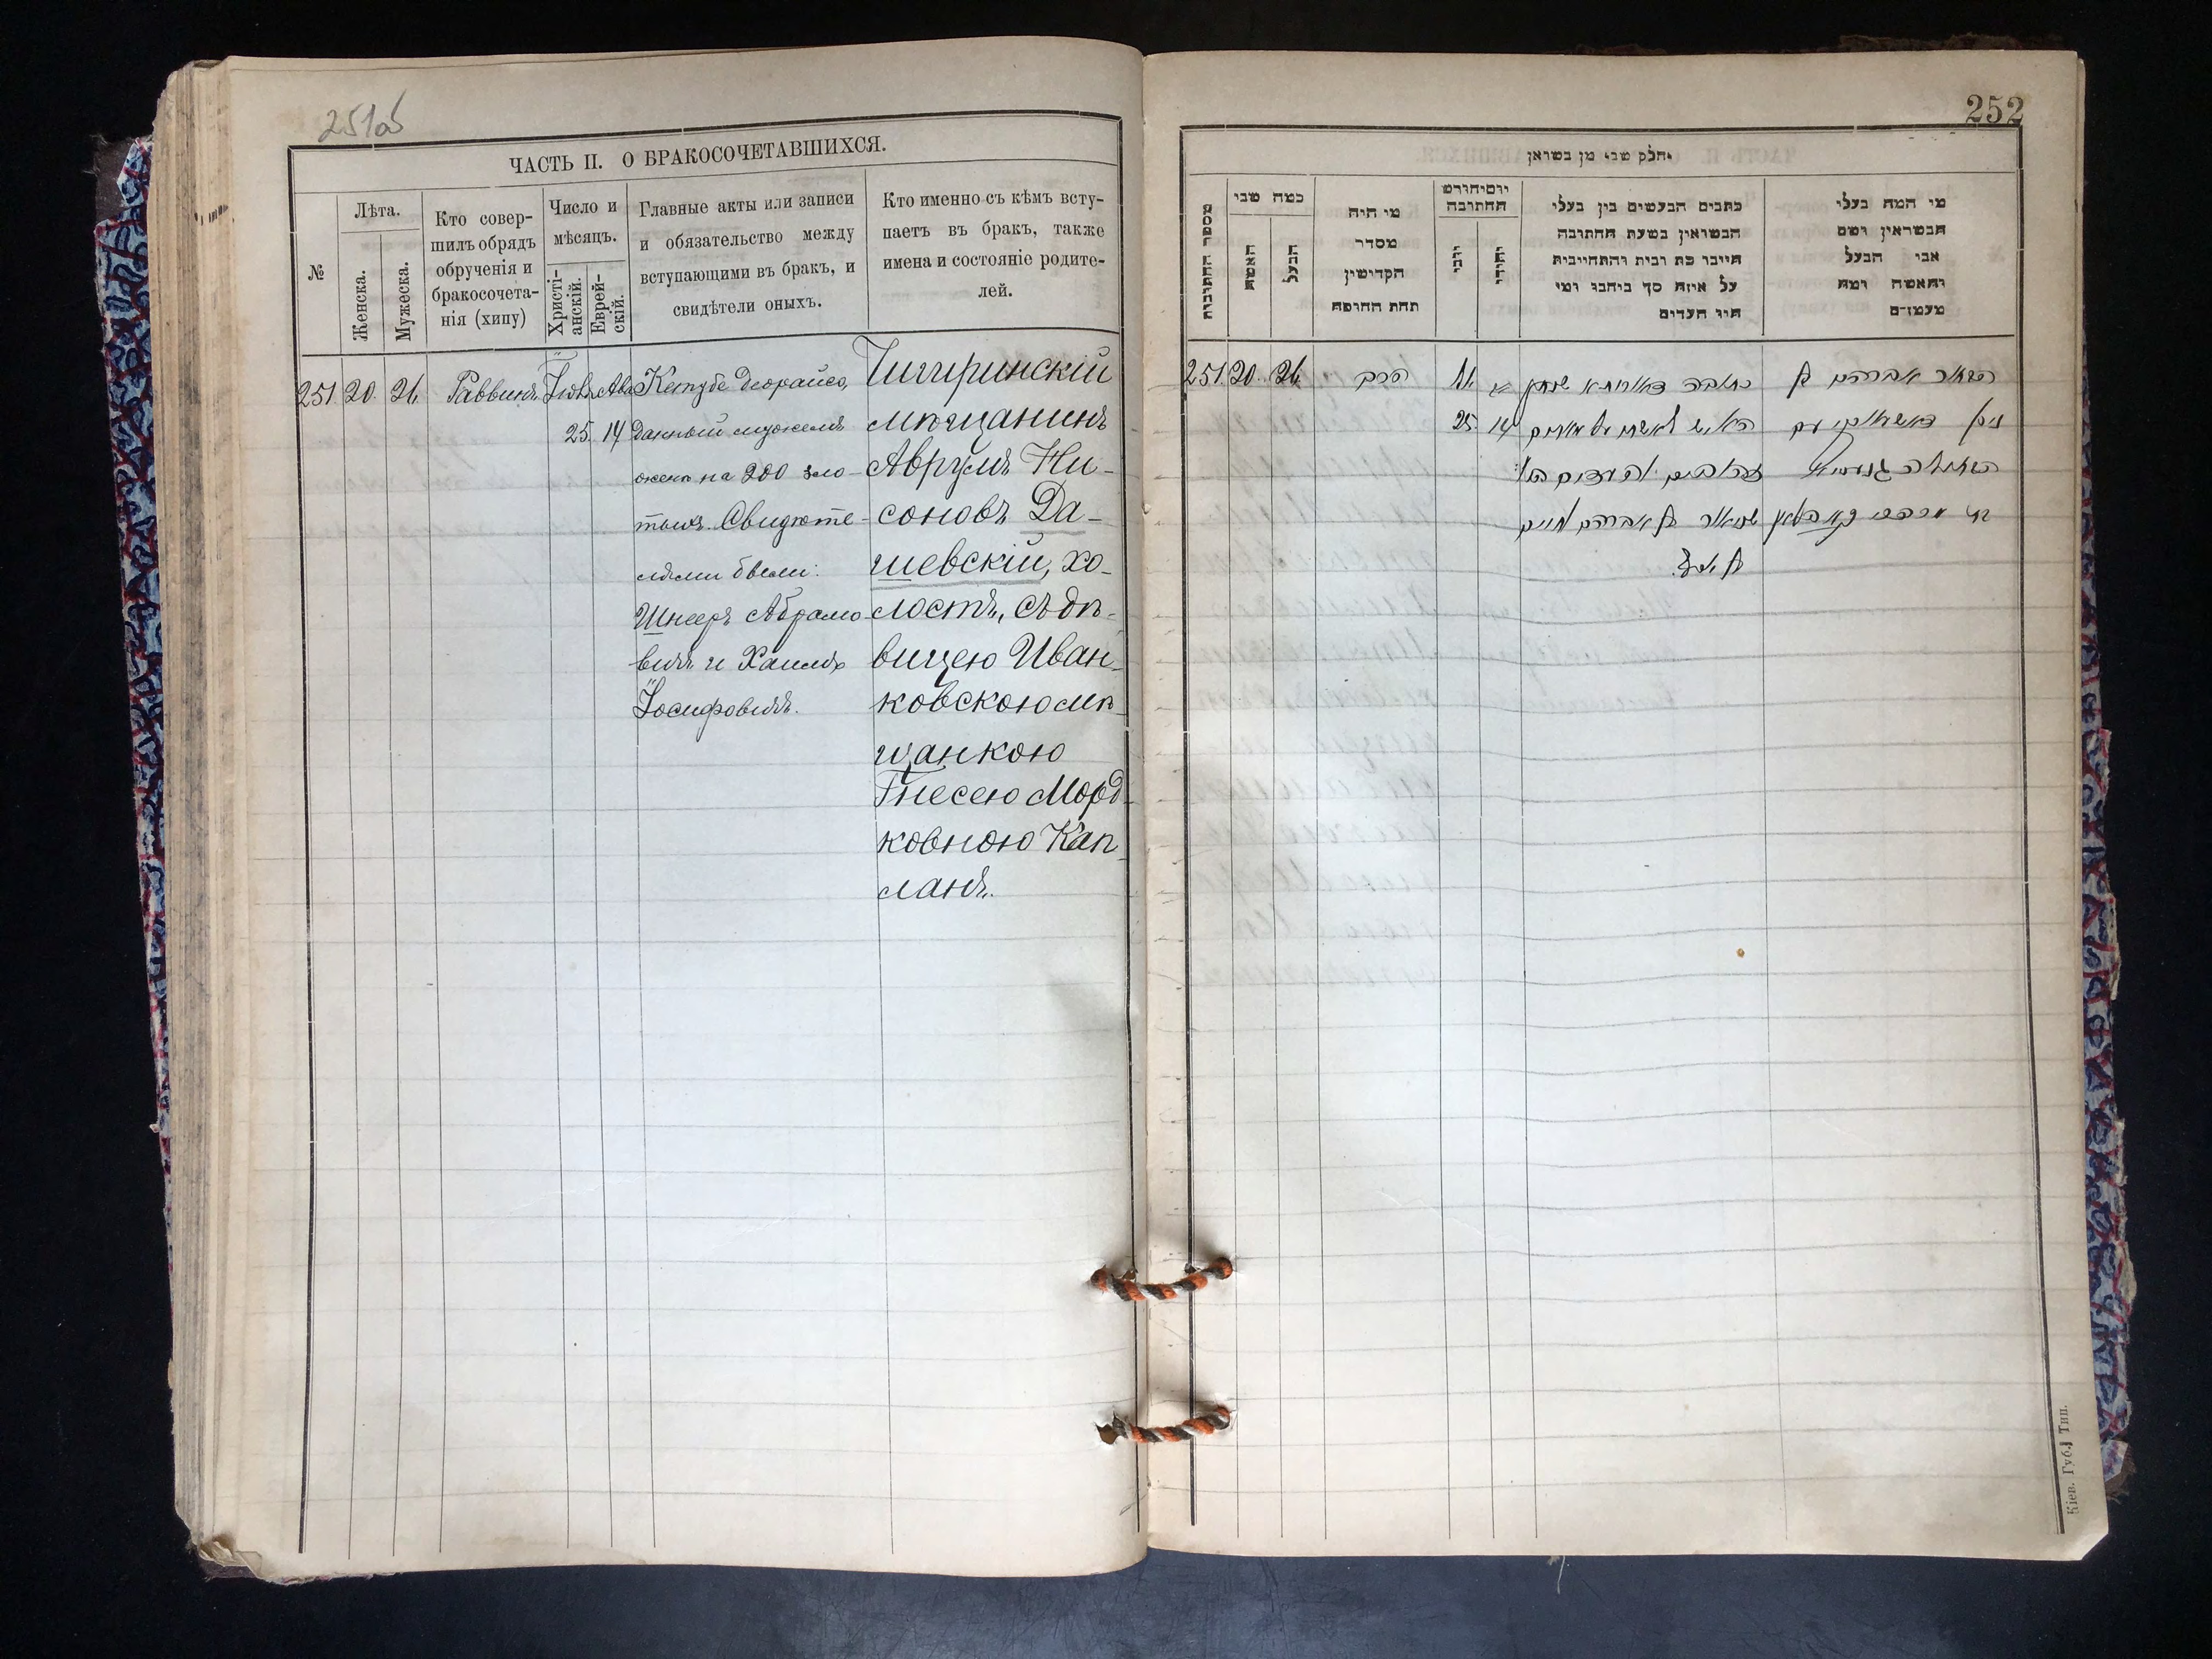 251об
ЧАСТЬ II. О БРАКОСОЧЕТАВШИХСЯ.
№
Лѣта.
Женска.
Мужеска.
Кто совер-
шилъ обрядъ
обрученія и
бракосочета-
нія (хипу)
Число и
мѣсяцъ.
Христі-
анскій.
Еврей-
скій.
Главные акты или записи
и обязательство между
вступающими въ бракъ, и
свидѣтели оныхъ.
Кто именно съ кѣмъ всту-
паетъ въ бракъ, также
имена и состояніе родите-
лей.
251 20. 26.
Раввинъ
Іюля
25.
Ава
14
Кетубе деорайсо,
данный мужемъ
жене на 200 зло-
тыхъ. Свидѣте-
лями были:
Шнеръ Абрамо-
вичъ и Хаимъ
Іосифовичъ.
Чигиринскій
мѣщанинъ
Аврумъ Ни-
соновъ Да-
шевскій, хо-
лостъ, съ дѣ-
вицею Иван-
ковскою мѣ-
щанкою
Гнесею Морд-
ковною Кап-
ланъ.
252
חלק שני מן נשואין
מספר החתונות
כמה שני
האשה
הבעל
מי היה
מסדר
הקדושין
תחת החופה
יום וחודש
החתונה
כתבים הנעשים בין בעלי
הנשואין בשעת החתונה
על איזה סך כתבו ומי
היו העדים
מי המה בעלי
הנשואין ושם
אבי הבעל
והאשה ומה
מעמדם
251. 20. 26.
הרב
25.
14
כתובה דאורייתא שנתן
הבחור אברהם בן
ניסן דאשעווסקי עם
הבתולה גנעסיא
בת מרדכי קאפלאן
Кіев. Губ. Тип.